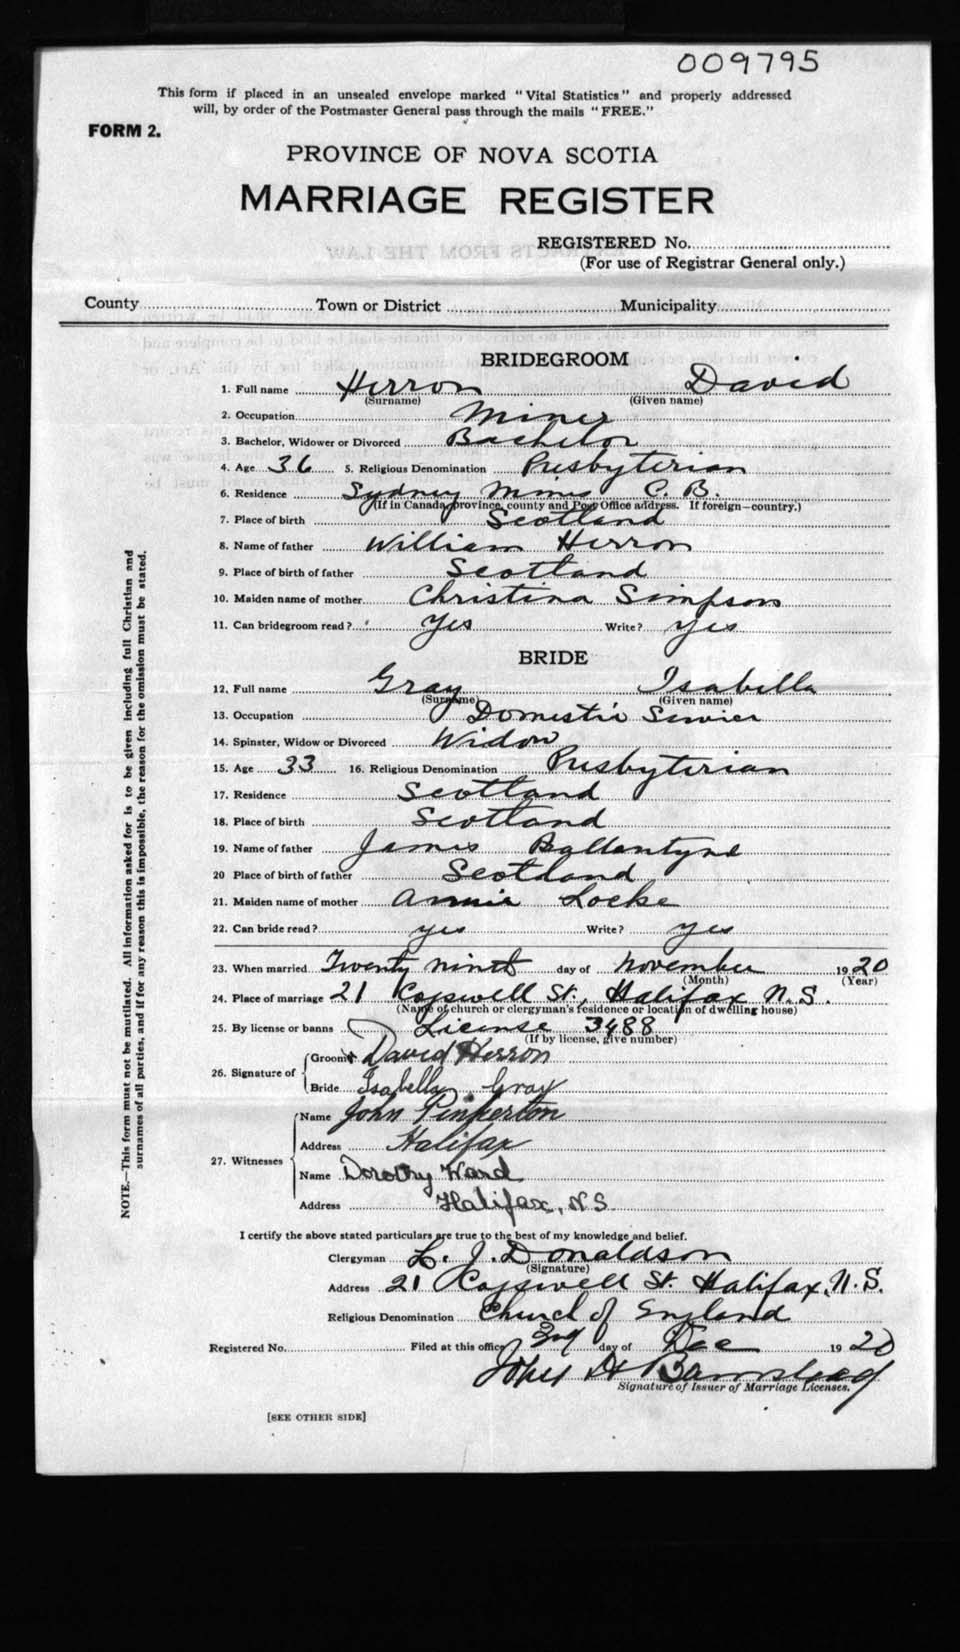 009795
This form if placed in an unsealed envelope marked "Vital Statistics" and properly addressed
will, by order of the Postmaster General pass through the mails "FREE."
FORM 2.
PROVINCE OF NOVA SCOTIA
MARRIAGE REGISTER
REGISTERED No.
(For use of Registrar General only.)
County Town or District Municipality
BRIDEGROOM
1. Full name Herron David
(Surname) (Given name)
2. Occupation Miner
3. Bachelor, Widower or Divorced Bachelor
4. Age 36 5. Religious Denomination Presbyterian
6. Residence Sydney Mines C. B.
(If in Canada, province, county and Post Office address. If foreign—country.)
7. Place of birth Scotland
8. Name of father William Herron
9. Place of birth of father Scotland
10. Maiden name of mother Christina Simpson
11. Can bridegroom read? Yes Write? yes
BRIDE
12. Full name Gray Isabella
(Surname) (Given name)
13. Occupation Domestic Service
14. Spinster, Widow or Divorced Widow
15. Age 33 16. Religious Denomination Presbyterian
17. Residence Scotland
18. Place of birth Scotland
19. Name of father James Ballantyne
20 Place of birth of father Scotland
21. Maiden name of mother Annie Locke
22. Can bride read? yes Write? yes
23. When married Twenty ninth day of November 1920
(Month) (Year)
24. Place of marriage 21 Cogswell St., Halifax N.S.
(Name of church or clergyman's residence or location of dwelling house)
25. By license or banns License 3488
(If by license, give number)
26. Signature of
Groom David Herron
Bride Isabella Gray
27. Witnesses
Name John Pinkerton
Address Halifax
Name Dorothy Ward
Address Halifax, N.S.
I certify the above stated particulars are true to the best of my knowledge and belief.
Clergyman L. J. Donaldson
(Signature)
Address 21 Cogswell St. Halifax, N.S.
Religious Denomination Church of England
Registered No. Filed at this office 2nd day of Dec 1920
Signature of Issuer of Marriage Licenses.
[SEE OTHER SIDE]
NOTE.—This form must not be mutilated. All information asked for is to be given including full Christian and
surnames of all parties, and if for any reason this is impossible, the reason for the omission must be stated.